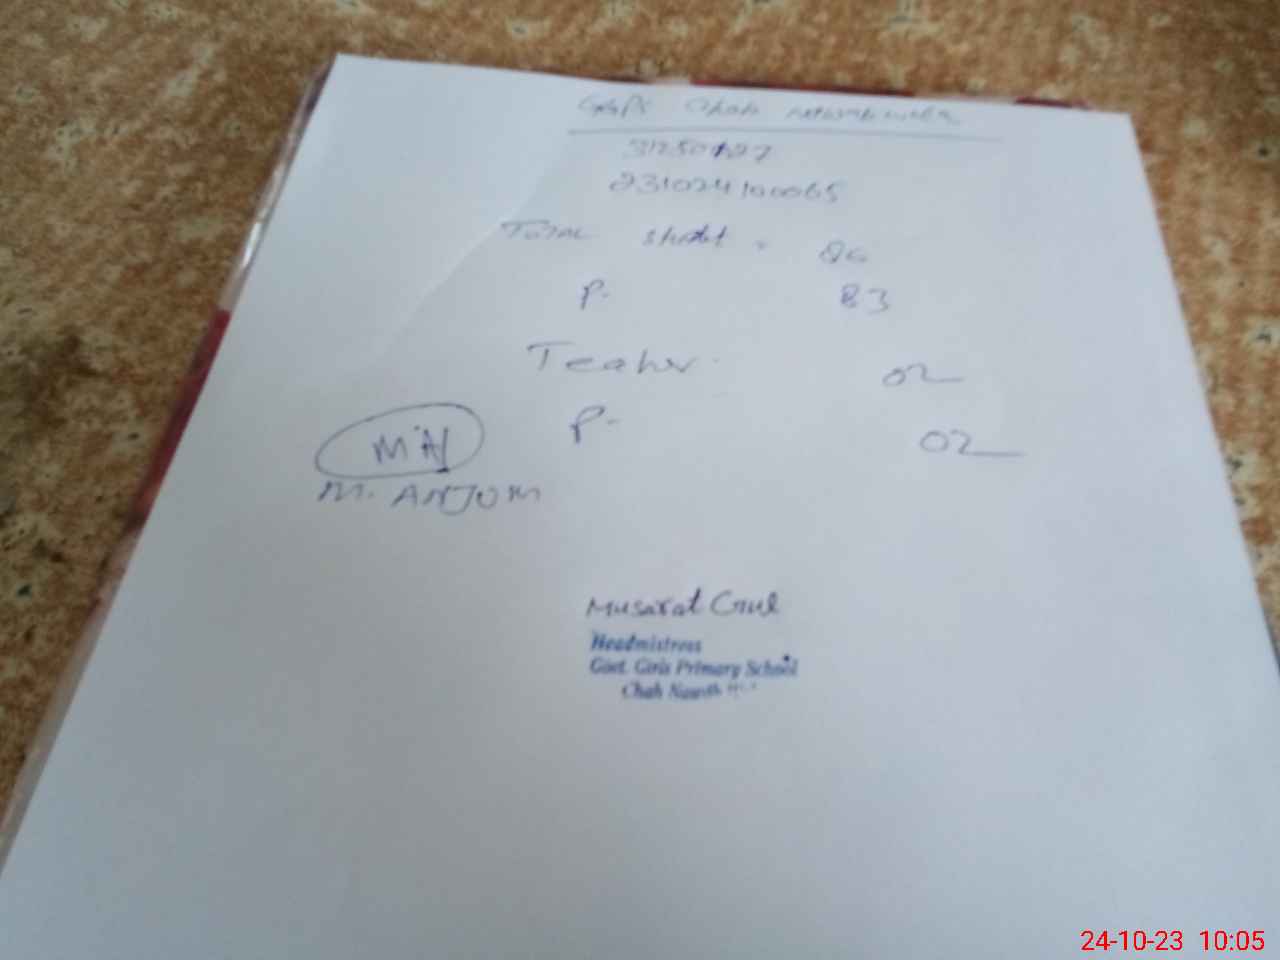 GGPS Chah
31250127
231024100065
Total 86
P- 83
Teahr. 02
P- 02
M.A
M. ANJUM
Musarat Gul
Headmistress
Govt. Girls Primary School
Chah
24-10-23 10:05